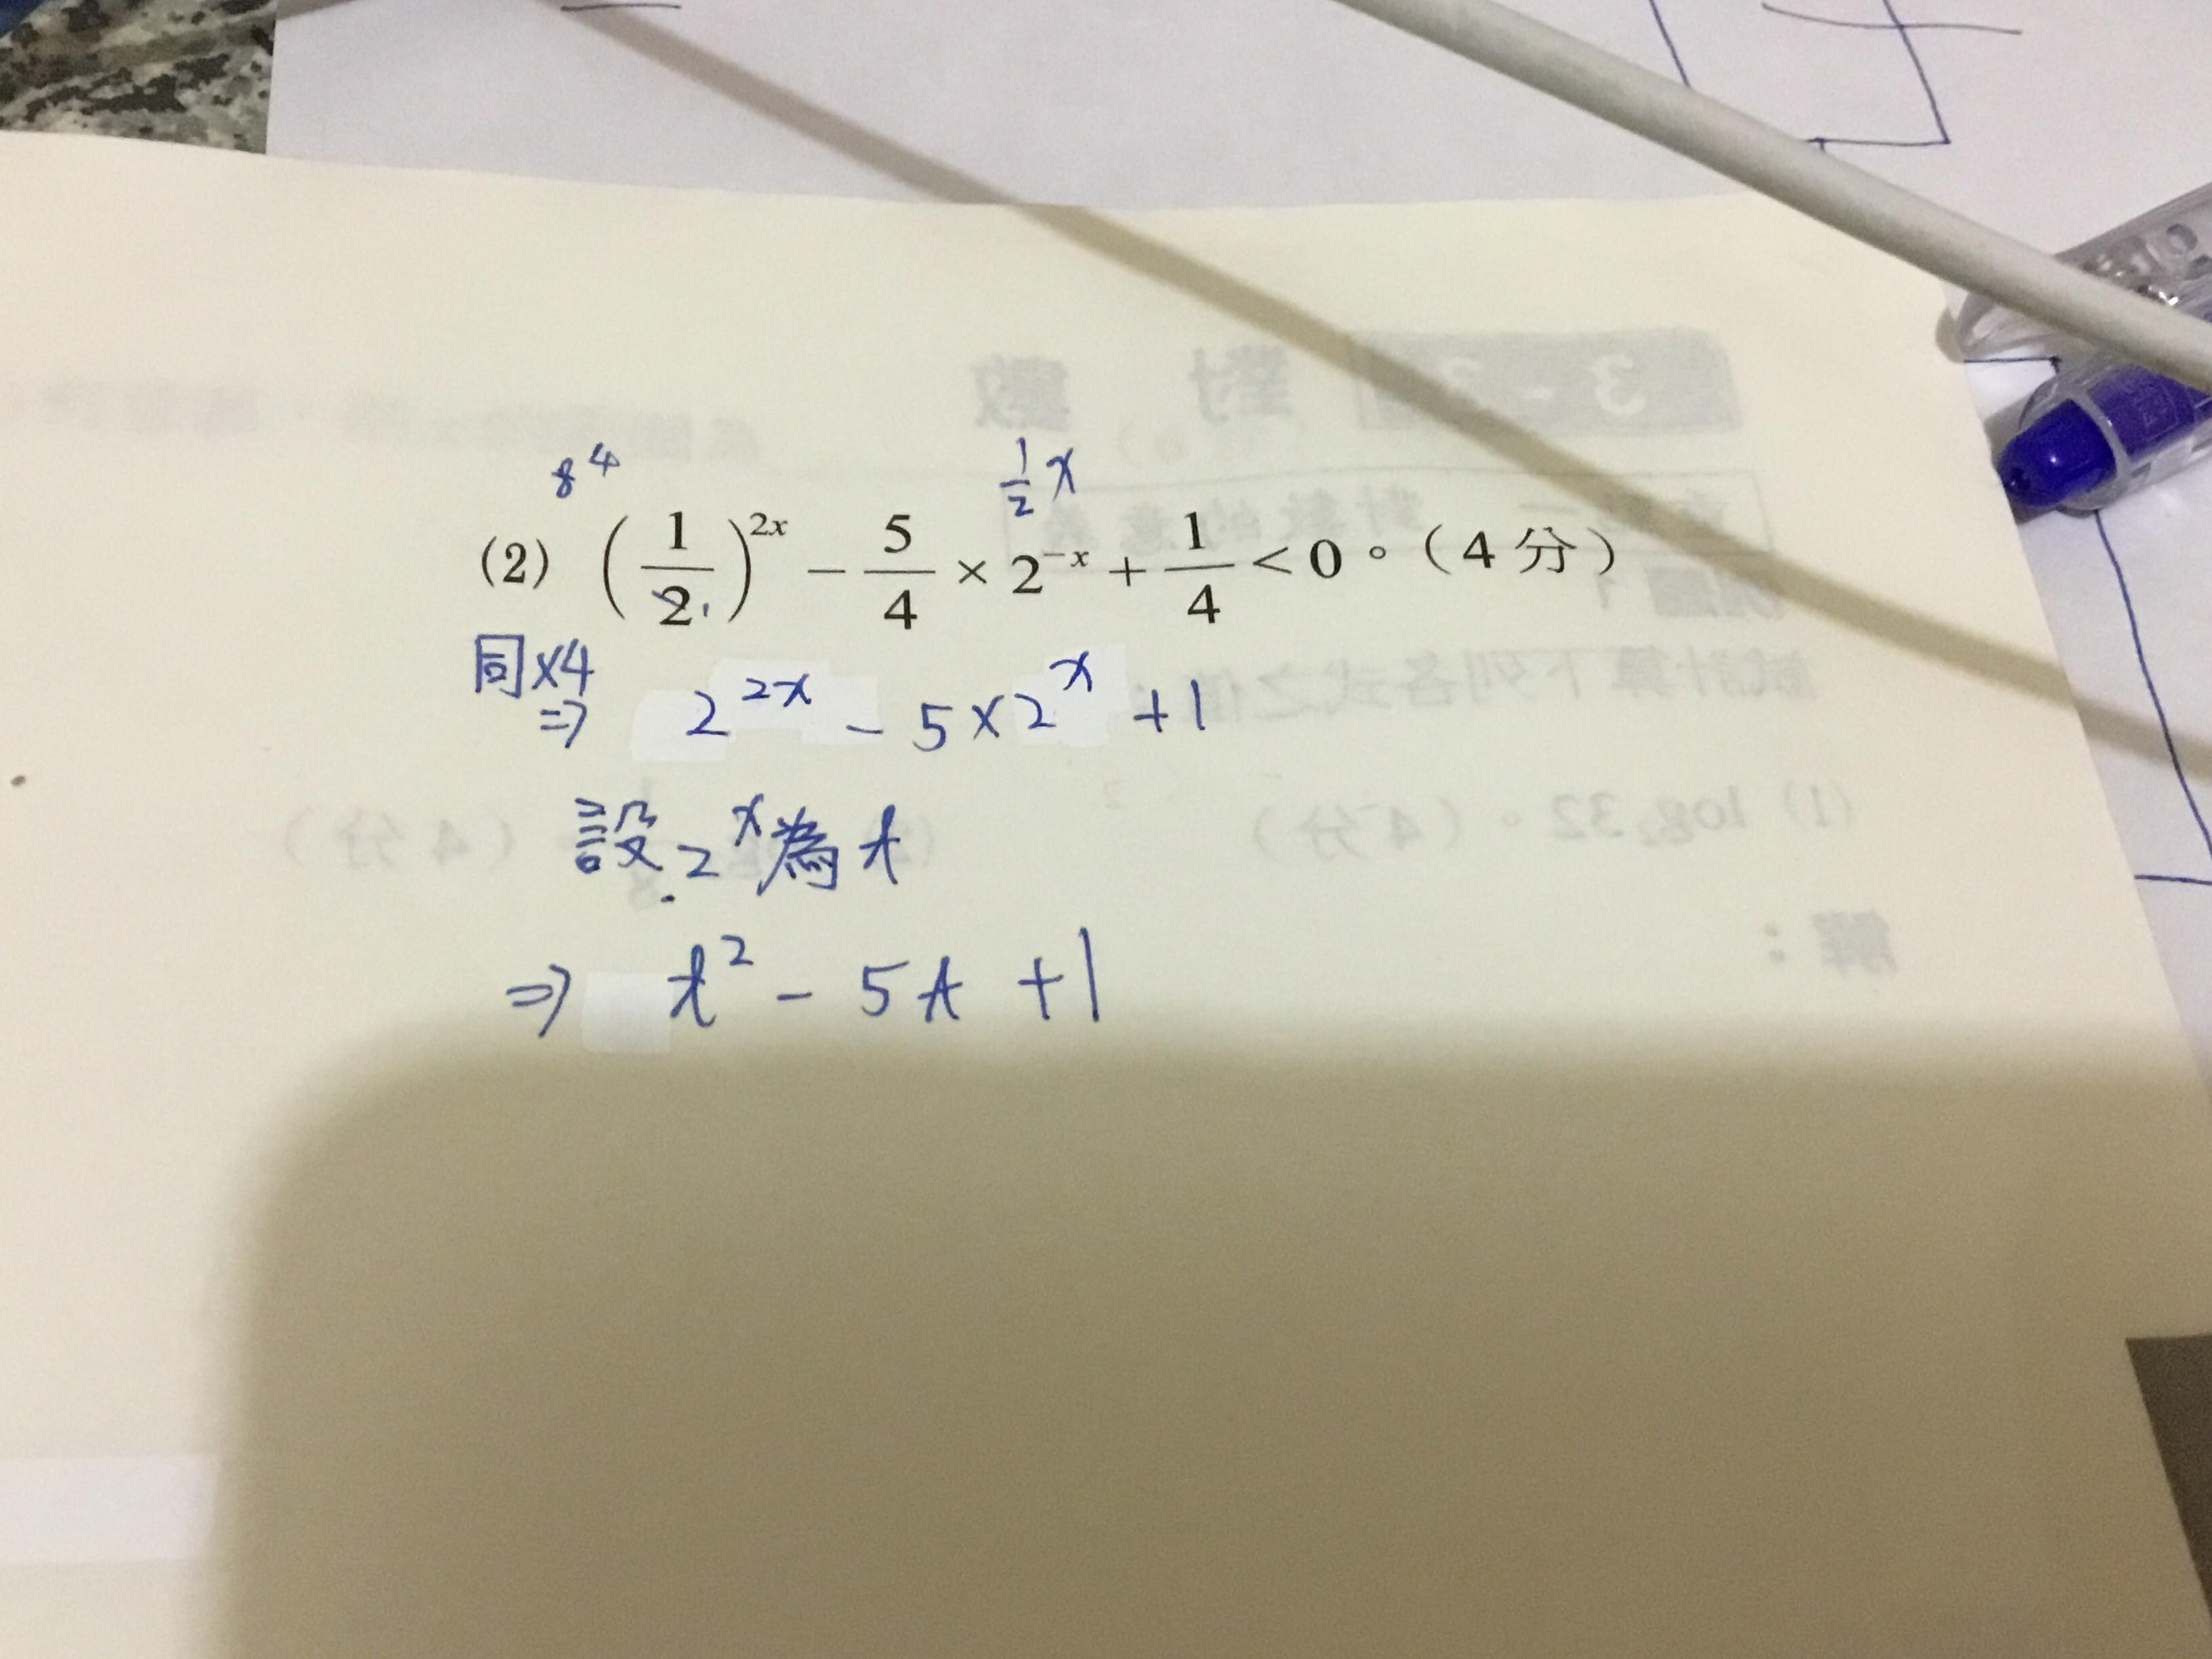 8 4
1/2 x
(2) (1/2)^{2x} − 5/4 × 2^{−x} + 1/4 < 0。(4 分)
同×4
⇒ 2^{2x} − 5×2^{x} +1
設 2^{x} 為 t
⇒ t² − 5t +1